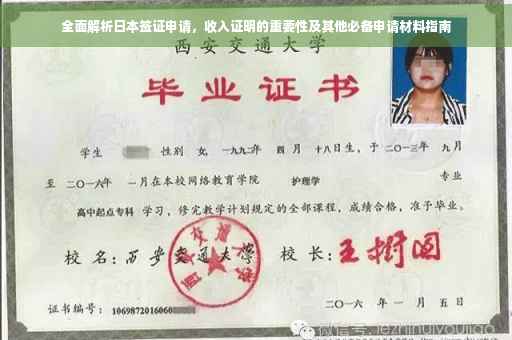 全面解析日本签证申请，收入证明的重要性及其他必备申请材料指南
西安交通大学
毕业证书
学生 性别 女，一九九二年 四月 十八日生，于二〇一三年 九月
至 二〇一六年 一月在本校网络教育学院 护理学 专业
高中起点专科 学习，修完教学计划规定的全部课程，成绩合格，准予毕业。
校名：西安交通大学 校长：王树国
西安交通大学
证书编号：1069872016060 二〇一六年 一月 五日
微信号: jezhinuiyoujiao